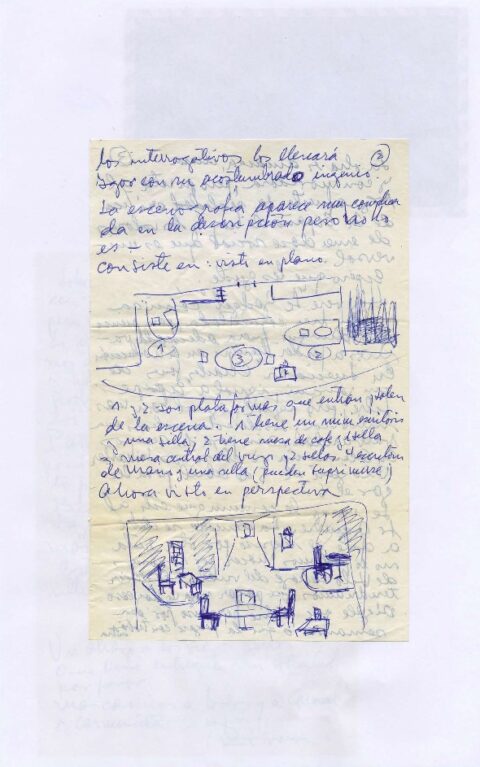 los interrogativos los llenará
3
Ugo con su acostumbrado ingenio.
La escenografia aparece muy complica
da en la descripción pero no lo
es —
consiste en: visto en plano.
1
3
2
4
1 y 2 son plataformas que entran y salen
de la escena. 1 tiene un mini escritorio
y una silla, 2 tiene mesa de cafe y 1 silla
mesa central del y 2 sillas 4 escritorio
de y una silla (pueden suprimirse)
Ahora visto en perspectiva